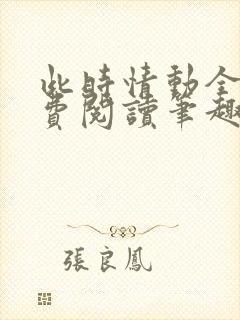 此時情動全
費閱讀筆趣
張良鳳